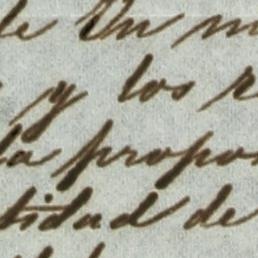 de Un m
y los r
la propor
tidad de